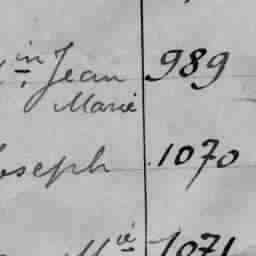 in Jean 989
Marie
Joseph 1070
Mie 1071